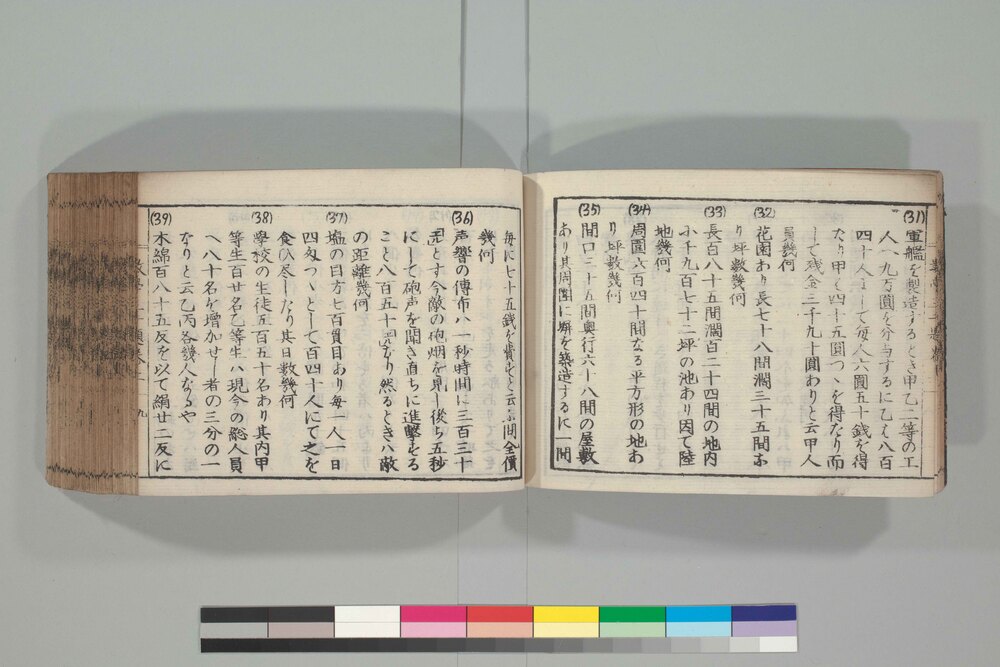 (31)
軍艦を製造するとき甲乙二等の工
人へ九万圓を分与するに乙ハ八百
四十人にして毎人六圓五十銭を得
たり甲ハ四十五圓つヽを得たり而
して残金三千九十圓ありと云甲人
員幾何
(32)
花園あり長七十八間濶三十五間な
り坪数幾何
(33)
長百八十五間濶百二十四間の地内
小千九百七十二坪の池あり因て陸
地幾何
(34)
周圍六百四十間なる平方形の地あ
り坪数幾何
(35)
間口三十五間奥行六十八間の屋敷
あり其周圍に塀を築造するに一間
毎に七十五銭を費すと云其間全價
幾何
(36)
声響の傳布ハ一秒時間に三百三十
とす今敵の砲烟を見し後ち五秒
にして砲声を聞き直ちに進撃する
こと八百五十なり然るときハ敵
の距離幾何
(37)
塩の目方七百貫目あり毎一人一日
四匁つヽとして百四十人にて之を
食ひ尽したり其日数幾何
(38)
學校の生徒五百五十名あり其内甲
等生百廿名乙等生ハ現今の総人員
へ八十名を増加せし者の三分の一
なりと云乙丙各幾人なるや
(39)
木綿百八十五反を以て絹廿二反に
九